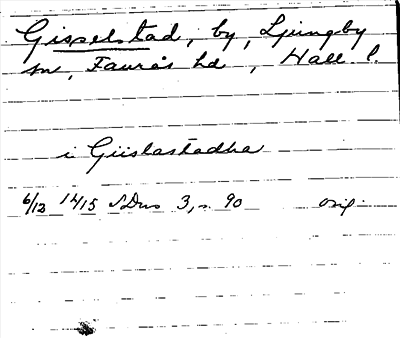 Gisselstad, by, Ljungby
sn, Faurås hd, Hall. l.
i Giislastadha
6/12 1415 SDns 3, s. 90 orig.